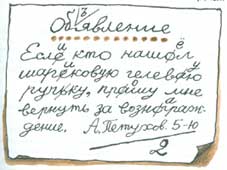 Объявление
Если кто нашёл
шариковую гелевую
ручку, прошу мне
вернуть за вознаграж-
дение. А. Петухов. 5-ю
2